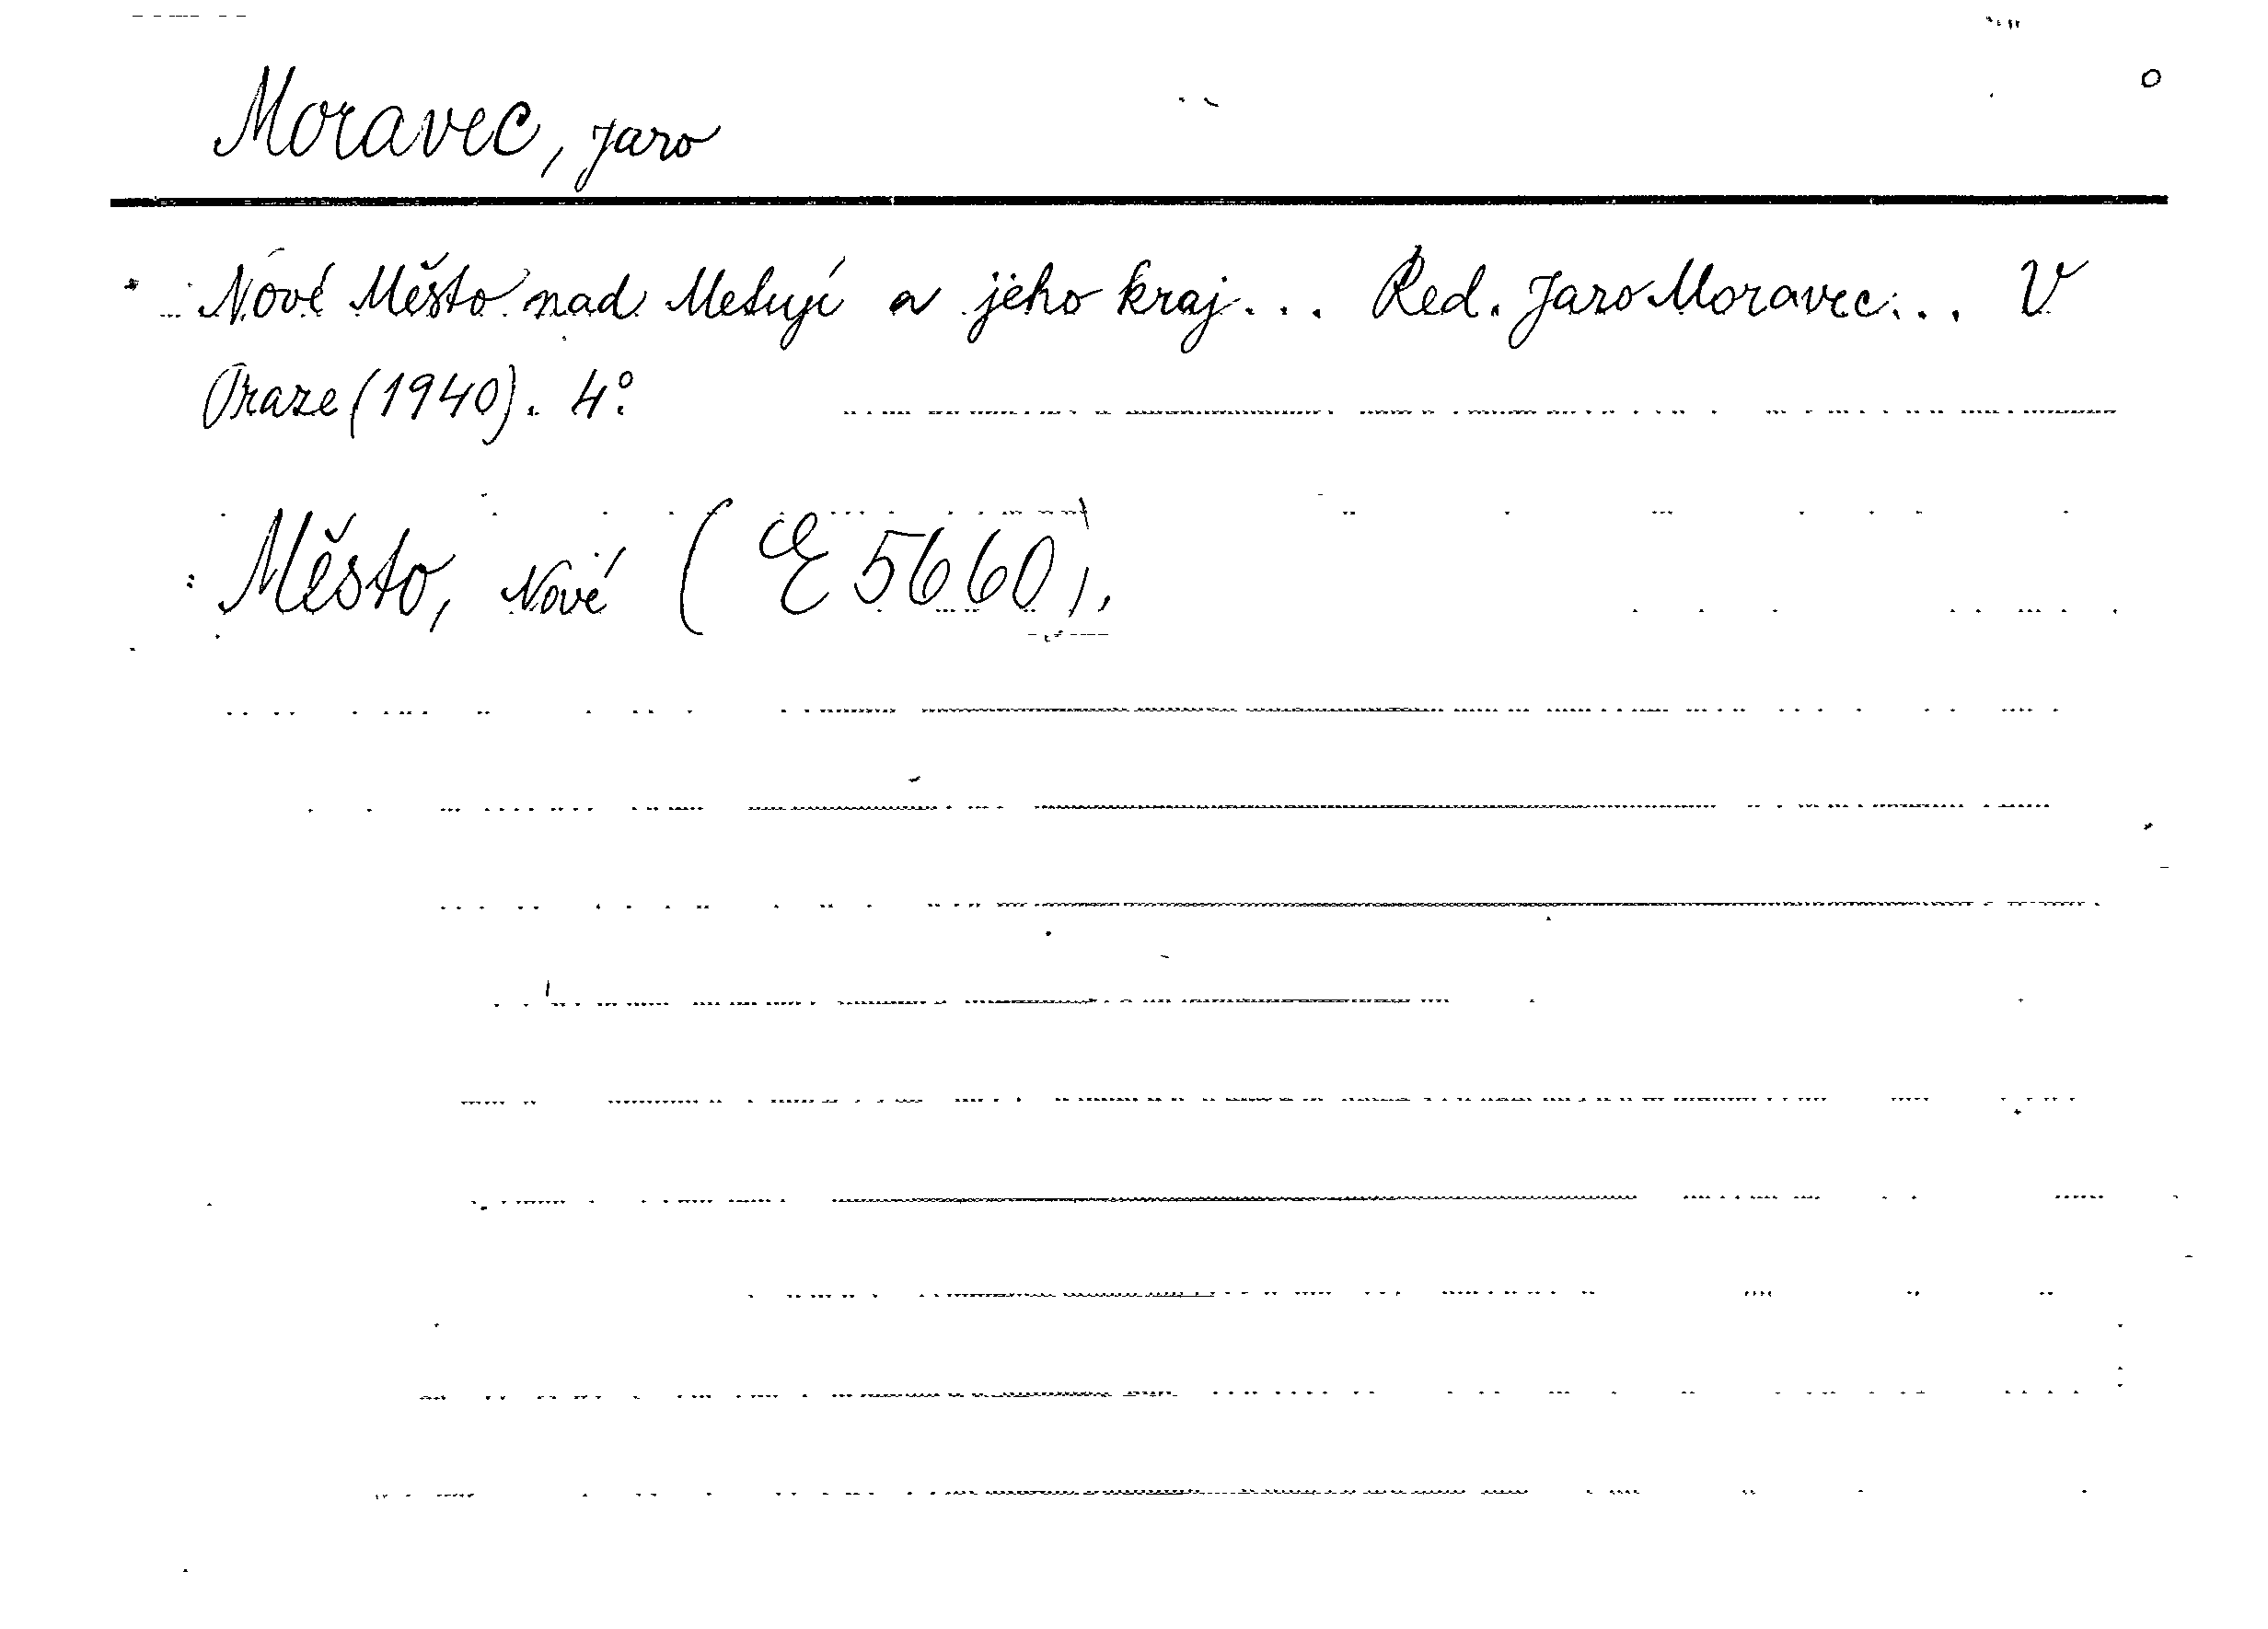 Moravec, Jaro
Nové Město nad Metují a jeho kraj... Red. Jaro Moravec... V
Praze (1940). 4°.
Město, Nové ( E 5660).